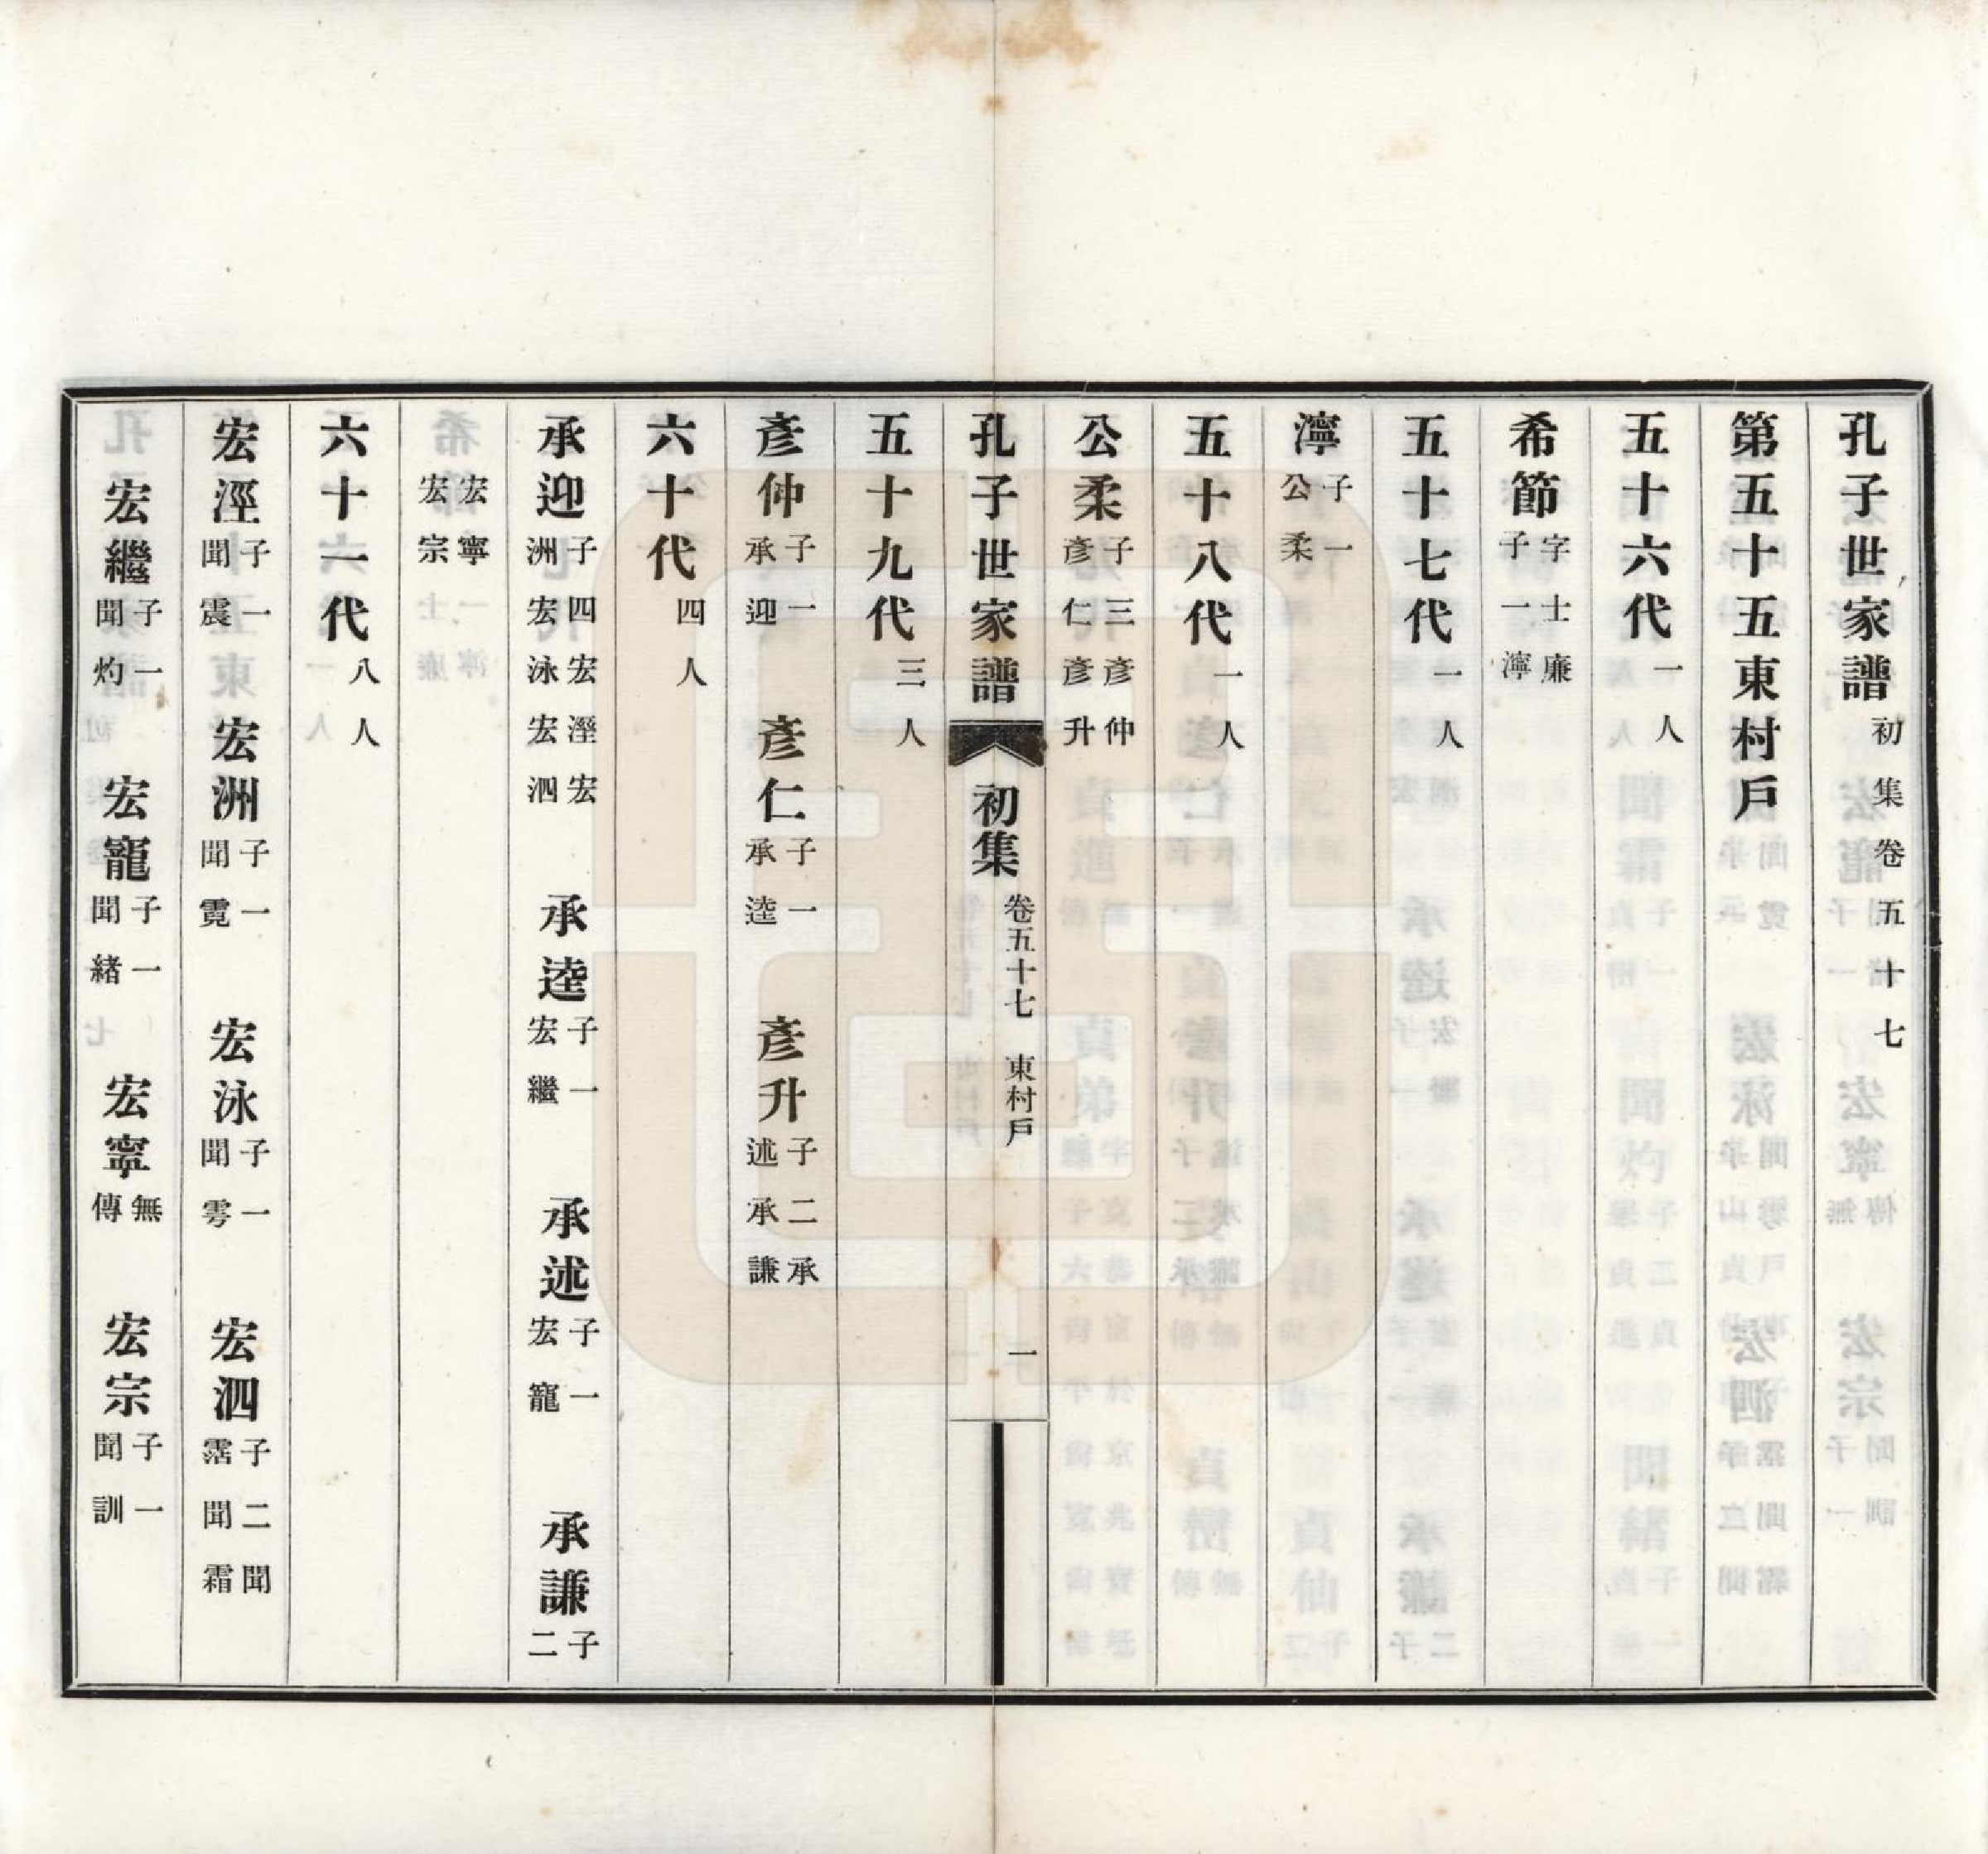 孔子世家譜初集卷五十七
第五十五東村戶
五十六代一人
希節字士廉子一濘
五十七代一人
濘子一公柔
五十八代一人
公柔子三彥仲彥仁彥升
孔子世家譜 初集 卷五十七 東村戶 一
五十九代三人
彥仲子一承迎 彥仁子一承逵 彥升子二承述承謙
六十代四人
承迎子四宏溼宏洲宏泳宏泗 承逵子一宏繼 承述子一宏寵 承謙子二
宏寧宏宗
六十一代八人
宏溼子一聞震 宏洲子一聞霓 宏泳子一聞雱 宏泗子二聞霑聞霜
宏繼子一聞灼 宏寵子一聞緒 宏寧無傳 宏宗子一聞訓